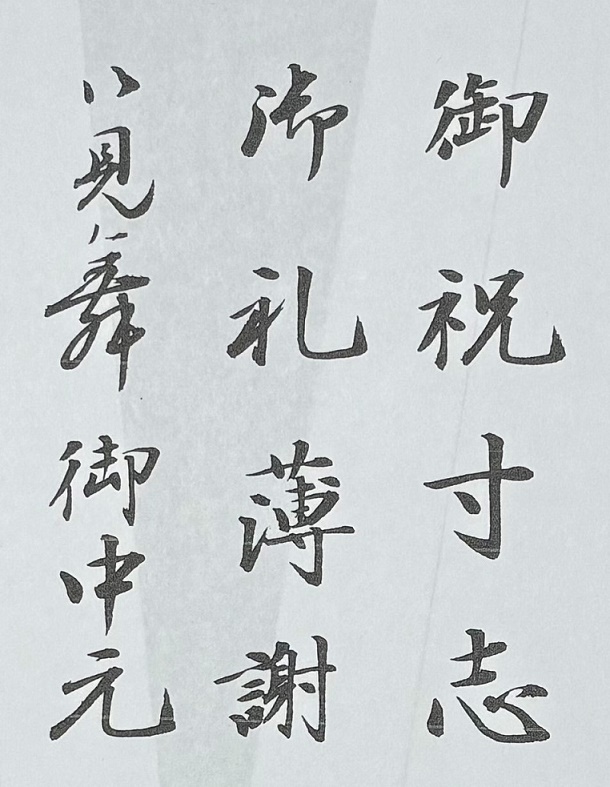 御祝寸志
御礼薄謝
お見舞御中元